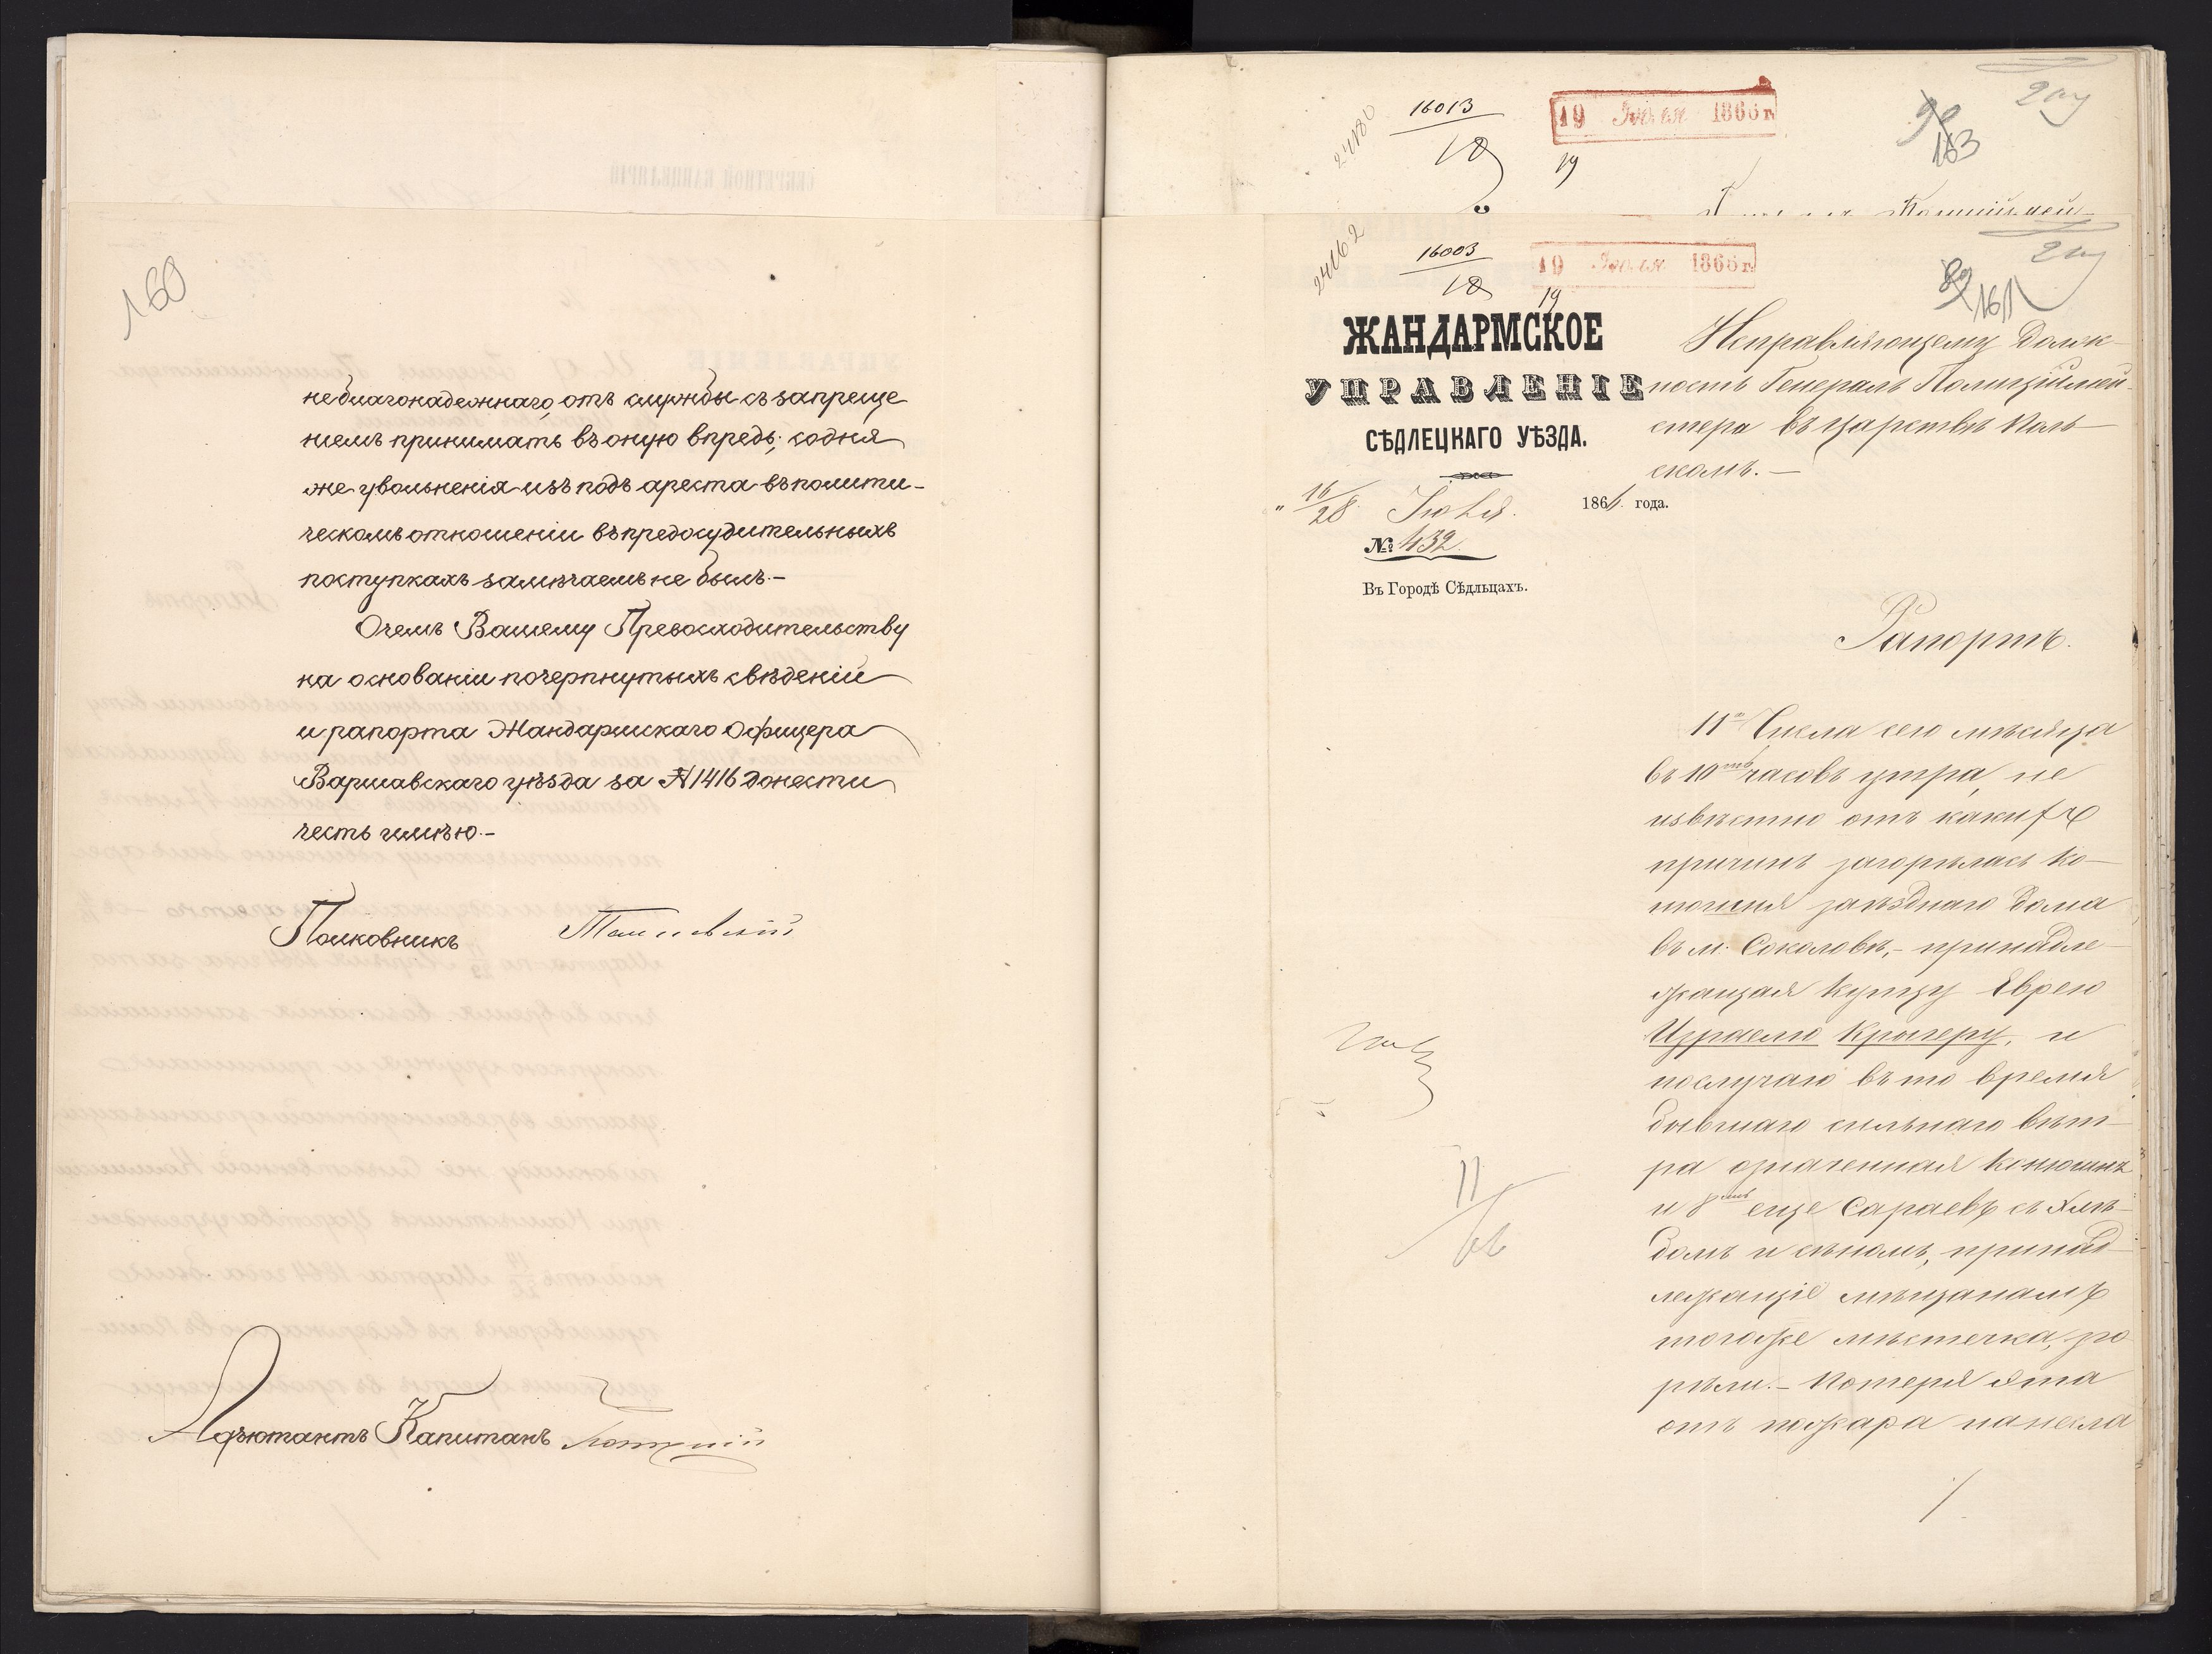 160
неблагонадежнаго, отъ службы съ запреще
ніемъ принимать въ оную впредь; со дня
же увольненія изъ подъ ареста въ полити-
ческомъ отношеніи въ предосудительныхъ
поступкахъ замѣчаемъ не былъ.-
Очемъ Вашему Превосходительству
на основаніи почерпнутыхъ свѣденій
и рапорта Жандармскаго Офицера
Варшавскаго уѣзда за №1416 донести
честь имѣю.-
Полковникъ
Адъютантъ Капитанъ
24180
16013
18
19 Іюля 1866 г.
19
163
24162
16003
18
19 Іюля 1866 г.
19
161
ЖАНДАРМСКОЕ
УПРАВЛЕНІЕ
СѢДЛЕЦКАГО УѢЗДА.
„ 16/28 Іюля. 1866 года.
№ 432.
Въ Городѣ Сѣдльцахъ.
Исправляющему Долж-
ность Генералъ Полиціймей-
стера въ Царствѣ Поль-
скомъ.-
Рапортъ.
11го Числа сего мѣсяца
въ 10ть часовъ утра, не
извѣстно отъ какихъ
причинъ загорѣлась ко-
нюшня заѣзднаго дома
въ м. Соколовѣ,- принадле-
жащая купцу Еврею
Израелю Кригеру, и
послучаю въ то время
бывшаго сильнаго вѣт-
ра означенная конюшня
и 8мь еще сараевъ съ хлѣ-
бомъ и сѣномъ, принад-
лежащіе мѣщанамъ
тогоже мѣстечка, зго
рѣли.- Потеря эта
отъ пожара нанесла
11/66